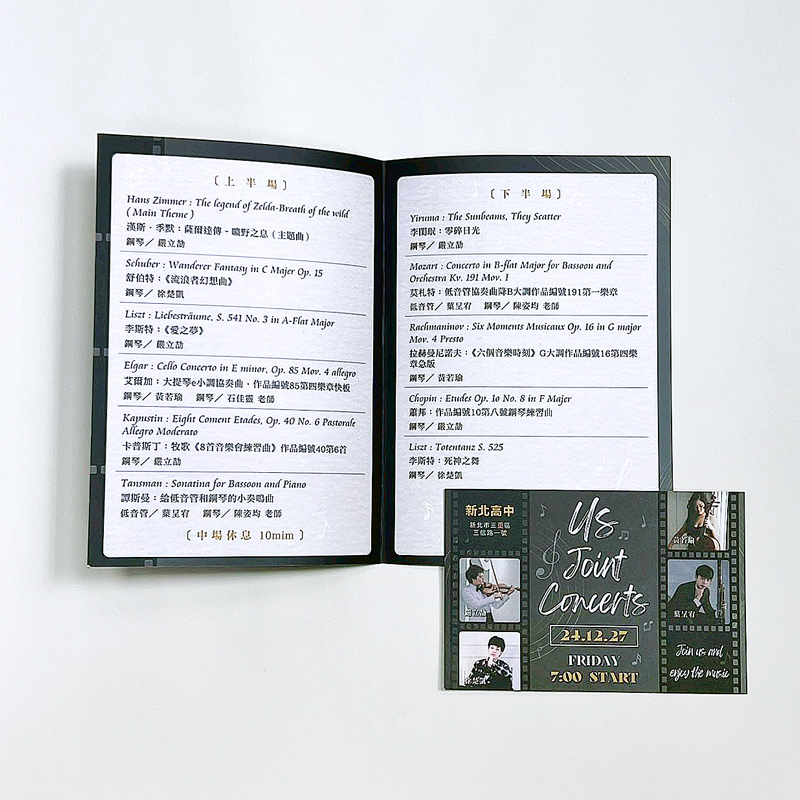 〔上半場〕
Hans Zimmer : The legend of Zelda-Breath of the wild
( Main Theme )
漢斯・季默：薩爾達傳 - 曠野之息（主題曲）
鋼琴／ 嚴立劼
Schuber : Wanderer Fantasy in C Major Op. 15
舒伯特：《流浪者幻想曲》
鋼琴／ 徐楚凱
Liszt : Liebesträume, S. 541 No. 3 in A-Flat Major
李斯特：《愛之夢》
鋼琴／ 嚴立劼
Elgar : Cello Concerto in E minor, Op. 85 Mov. 4 allegro
艾爾加：大提琴e小調協奏曲，作品編號85第四樂章快板
鋼琴／ 黃若瑜 鋼琴／ 石佳靈 老師
Kapustin : Eight Coment Etades, Op. 40 No. 6 Pastorale
Allegro Moderato
卡普斯丁：牧歌《8首音樂會練習曲》作品編號40第6首
鋼琴／ 嚴立劼
Tansman : Sonatina for Bassoon and Piano
譚斯曼：給低音管和鋼琴的小奏鳴曲
低音管／ 葉呈宥 鋼琴／ 陳姿均 老師
〔中場休息 10mim〕
〔下半場〕
Yiruma : The Sunbeams, They Scatter
李閏珉：零碎日光
鋼琴／ 嚴立劼
Mozart : Concerto in B-flat Major for Bassoon and
Orchestra Kv. 191 Mov. 1
莫札特：低音管協奏曲降B大調作品編號191第一樂章
低音管／ 葉呈宥 鋼琴／ 陳姿均 老師
Rachmaninov : Six Moments Musicaux Op. 16 in G major
Mov. 4 Presto
拉赫曼尼諾夫：《六個音樂時刻》G大調作品編號16第四樂
章急版
鋼琴／ 黃若瑜
Chopin : Etudes Op. 1o No. 8 in F Major
蕭邦：作品編號10第八號鋼琴練習曲
鋼琴／ 嚴立劼
Liszt : Totentanz S. 525
李斯特：死神之舞
鋼琴／ 徐楚凱
新北高中
新北市三重區
三信路一號
Us
Joint
Concerts
24.12.27
FRIDAY
7:00 START
黃若瑜
葉呈宥
徐楚凱
Join us and
enjoy the music